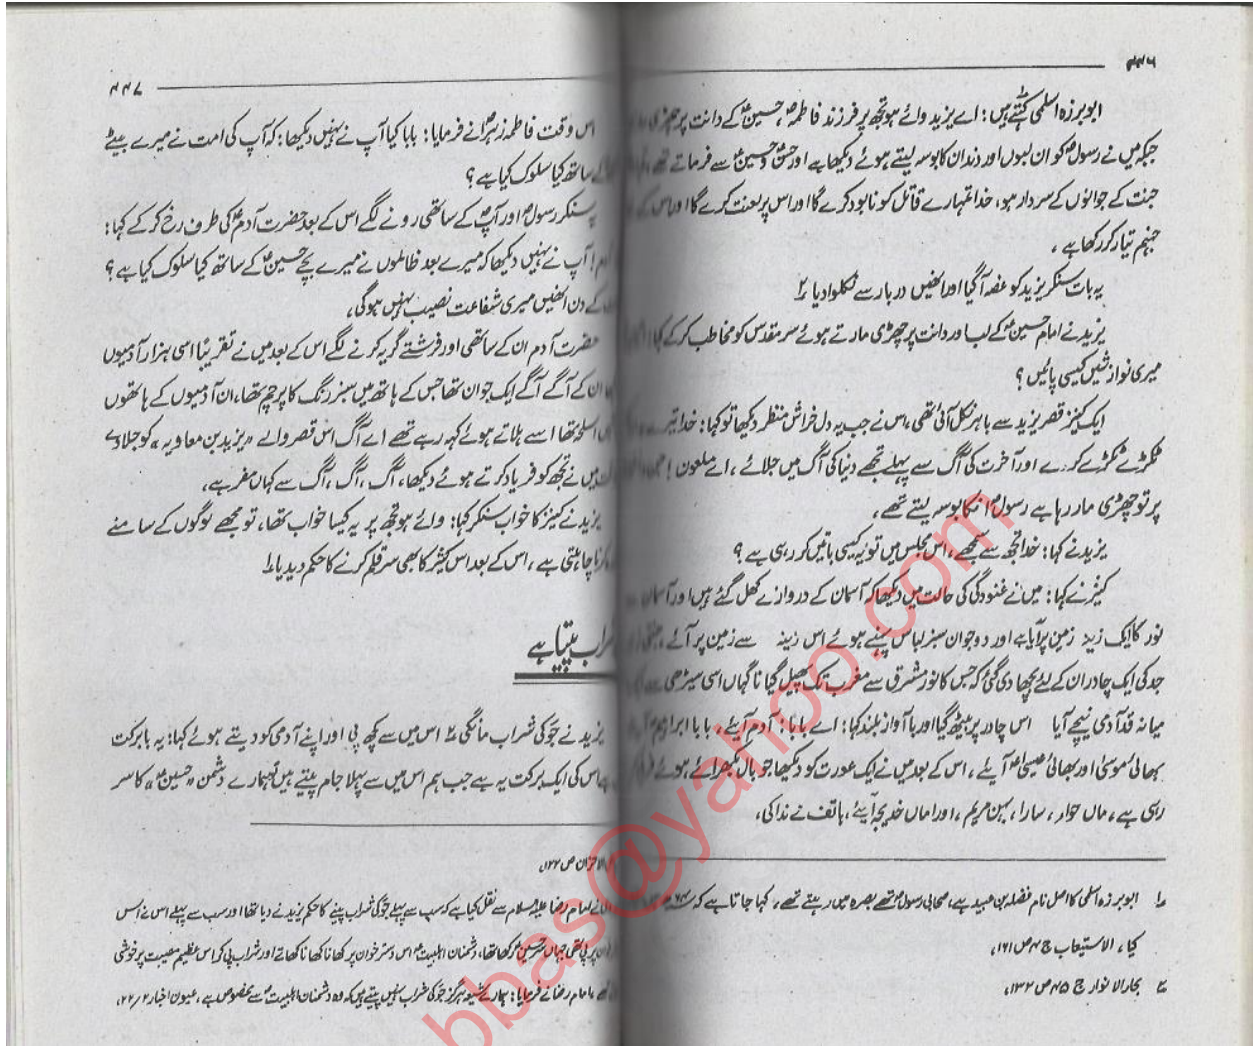 ۴۴۶
ابو برزہ اسلمی کہتے ہیں: اے یزید وائے ہو تجھ پر فرزند فاطمہؑ، حسینؑ کے دانت پر چھڑی
جبکہ میں نے رسولؐ کو ان لبوں اور دندان کا بوسہ لیتے ہوئے دیکھا ہے اور حسنؑ و حسینؑ سے فرماتے تھے،
جنت کے جوانوں کے سردار ہو، خدا تمہارے قاتل کو نابود کرے گا اور اس پر لعنت کرے گا اور اس کے
جہنم تیار کر رکھا ہے۔
یہ بات سنکر یزید کو غصہ آگیا اور انھیں دربار سے نکلوا دیا ۲
یزید نے امام حسینؑ کے لب اور دانت پر چھڑی مارتے ہوئے سر مقدس کو مخاطب کر کے کہا
میری نوازشیں کیسی پائیں؟
ایک کنیز قصر یزید سے باہر نکل آئی تھی، اس نے جب یہ دل خراش منظر دیکھا تو کہا: خدا تیرے
ٹکڑے ٹکڑے کرے اور آخرت کی آگ سے پہلے تجھے دنیا کی آگ میں جلائے، اے ملعون!
پر تو چھڑی مار رہا ہے رسولؐ انکا بوسہ لیتے تھے،
یزید نے کہا: خدا تجھ سے سمجھے، اس مجلس میں تو یہ کیسی باتیں کر رہی ہے؟
کنیز نے کہا: میں نے غنودگی کی حالت میں دیکھا کہ آسمان کے دروازے کھل گئے ہیں اور آسمان
نور کا ایک زینہ زمین پر آیا ہے اور دو جوان سبز لباس پہنے ہوئے اس زینہ سے زمین پر آئے،
جد کی ایک چادر ان کے لئے بچھا دی گئی کہ جس کا نور مشرق سے مغرب تک پھیل گیا ناگہاں اسی سیڑھی سے
میانہ قد آدمی نیچے آیا اس چادر پر بیٹھ گیا اور با آواز بلند کہا: اے بابا: آدم آیئے، بابا ابراہیم
بھائی موسیٰ اور بھائی عیسیٰؑ آیئے، اس کے بعد میں نے ایک عورت کو دیکھا جو بال بکھرائے ہوئے
رہی ہے، ماں حواء، سارا، بہن مریم، اور اماں خدیجہ آیئے، ہاتف نے ندا کی،
۱ ابو برزہ اسلمی کا اصل نام فضلہ بن عبید ہے، صحابی رسولؐ تھے بصرہ میں رہتے تھے، کہا جاتا ہے کہ
کیا، الاستیعاب ج ۴ ص ۱۶۱،
۲ بحار الانوار ج ۴۵ ص ۱۳۲،
۴۴۷
اس وقت فاطمہ زہراؑ نے فرمایا: بابا کیا آپ نے نہیں دیکھا: کہ آپ کی امت نے میرے بیٹے
کے ساتھ کیا سلوک کیا ہے؟
یہ سنکر رسولؐ اور آپؐ کے ساتھی رونے لگے اس کے بعد حضرت آدمؑ کی طرف رخ کر کے کہا:
آپ نے نہیں دیکھا کہ میرے بعد ظالموں نے میرے بچے حسینؑ کے ساتھ کیا سلوک کیا ہے؟
کے دن انھیں میری شفاعت نصیب نہیں ہوگی،
حضرت آدم ان کے ساتھی اور فرشتے گریہ کرنے لگے اس کے بعد میں نے تقریباً اسی ہزار آدمیوں
ان کے آگے آگے ایک جوان تھا جس کے ہاتھ میں سبز رنگ کا پرچم تھا، ان آدمیوں کے ہاتھوں
میں اسلحہ تھا اسے ہلاتے ہوئے کہہ رہے تھے اے آگ اس قصر والے "یزید بن معاویہ" کو جلا دے
میں نے تجھ کو فریاد کرتے ہوئے دیکھا، آگ، آگ، آگ سے کہاں مفر ہے،
یزید نے کنیز کا خواب سنکر کہا: وائے ہو تجھ پر یہ کیسا خواب تھا، تو مجھے لوگوں کے سامنے
کرنا چاہتی ہے، اس کے بعد اس کنیز کا بھی سر قلم کرنے کا حکم دیدیا۔۱
شراب پیتا ہے
یزید نے جَو کی شراب مانگی ۲ اس میں سے کچھ پی اور اپنے آدمی کو دیتے ہوئے کہا: یہ بابرکت
ہے اس کی ایک برکت یہ ہے جب ہم اس میں سے پہلا جام پیتے ہیں تمہارے دشمن "حسینؑ" کا سر
الاحزان ص ۱۲۲،
نے امام رضا علیہ السلام سے نقل کیا ہے کہ سب سے پہلے جَو کی شراب پینے کا حکم یزید نے دیا تھا اور سب سے پہلے اس نے اس
پر پی تھی جہاں سر حسینؑ رکھا تھا، دشمنان اہلبیتؑ اس دسترخوان پر کھانا کھاتے اور شراب پی کر اس عظیم مصیبت پر خوشی
تھے، امام رضا نے فرمایا: ہمارے شیعہ ہرگز جَو کی شراب نہیں پیتے ہیں کہ وہ دشمنان اہلبیتؑ سے مخصوص ہے، عیون اخبار ۲/۲۲،
bbas@yahoo.com